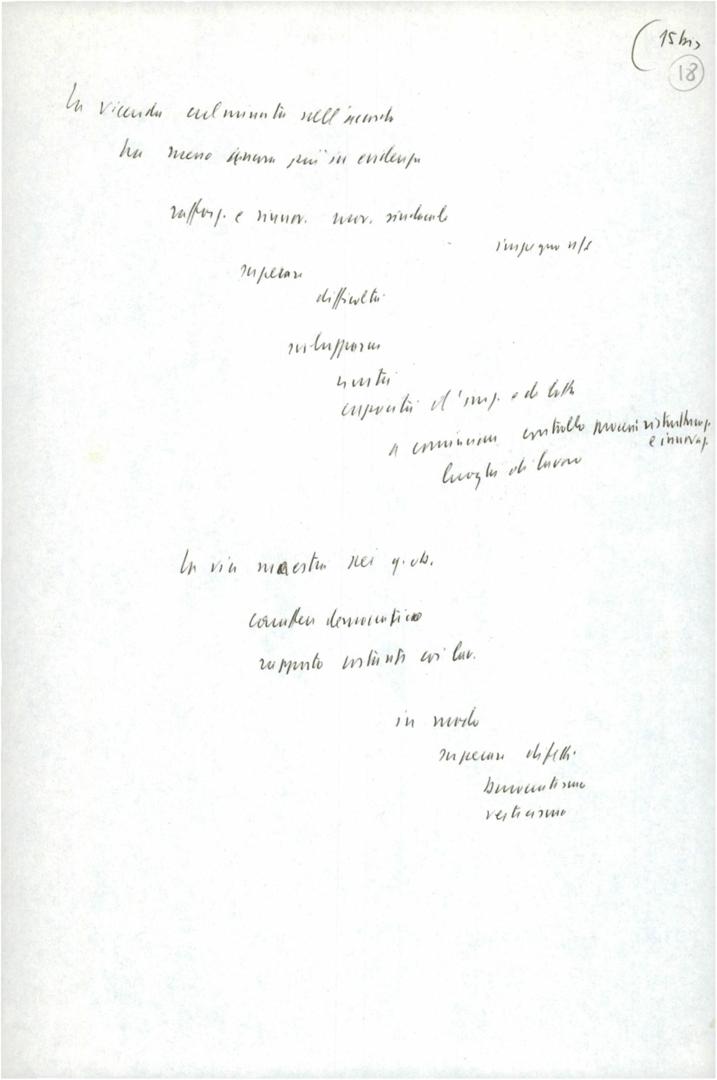 (15 bis
18
La vicenda culminata nell'accordo
ha messo ancora più in evidenza
rafforz. e rinnov. mov. sindacale
impegno n/s
superare
difficoltà
sviluppare
unità
capacità d' e di lotta
a cominciare controllo processi ristrutturaz.
e innovaz.
luoghi di lavoro
La via maestra
carattere democratico
rapporto costante coi lav.
in modo
superare difetti
burocratismo
verticismo